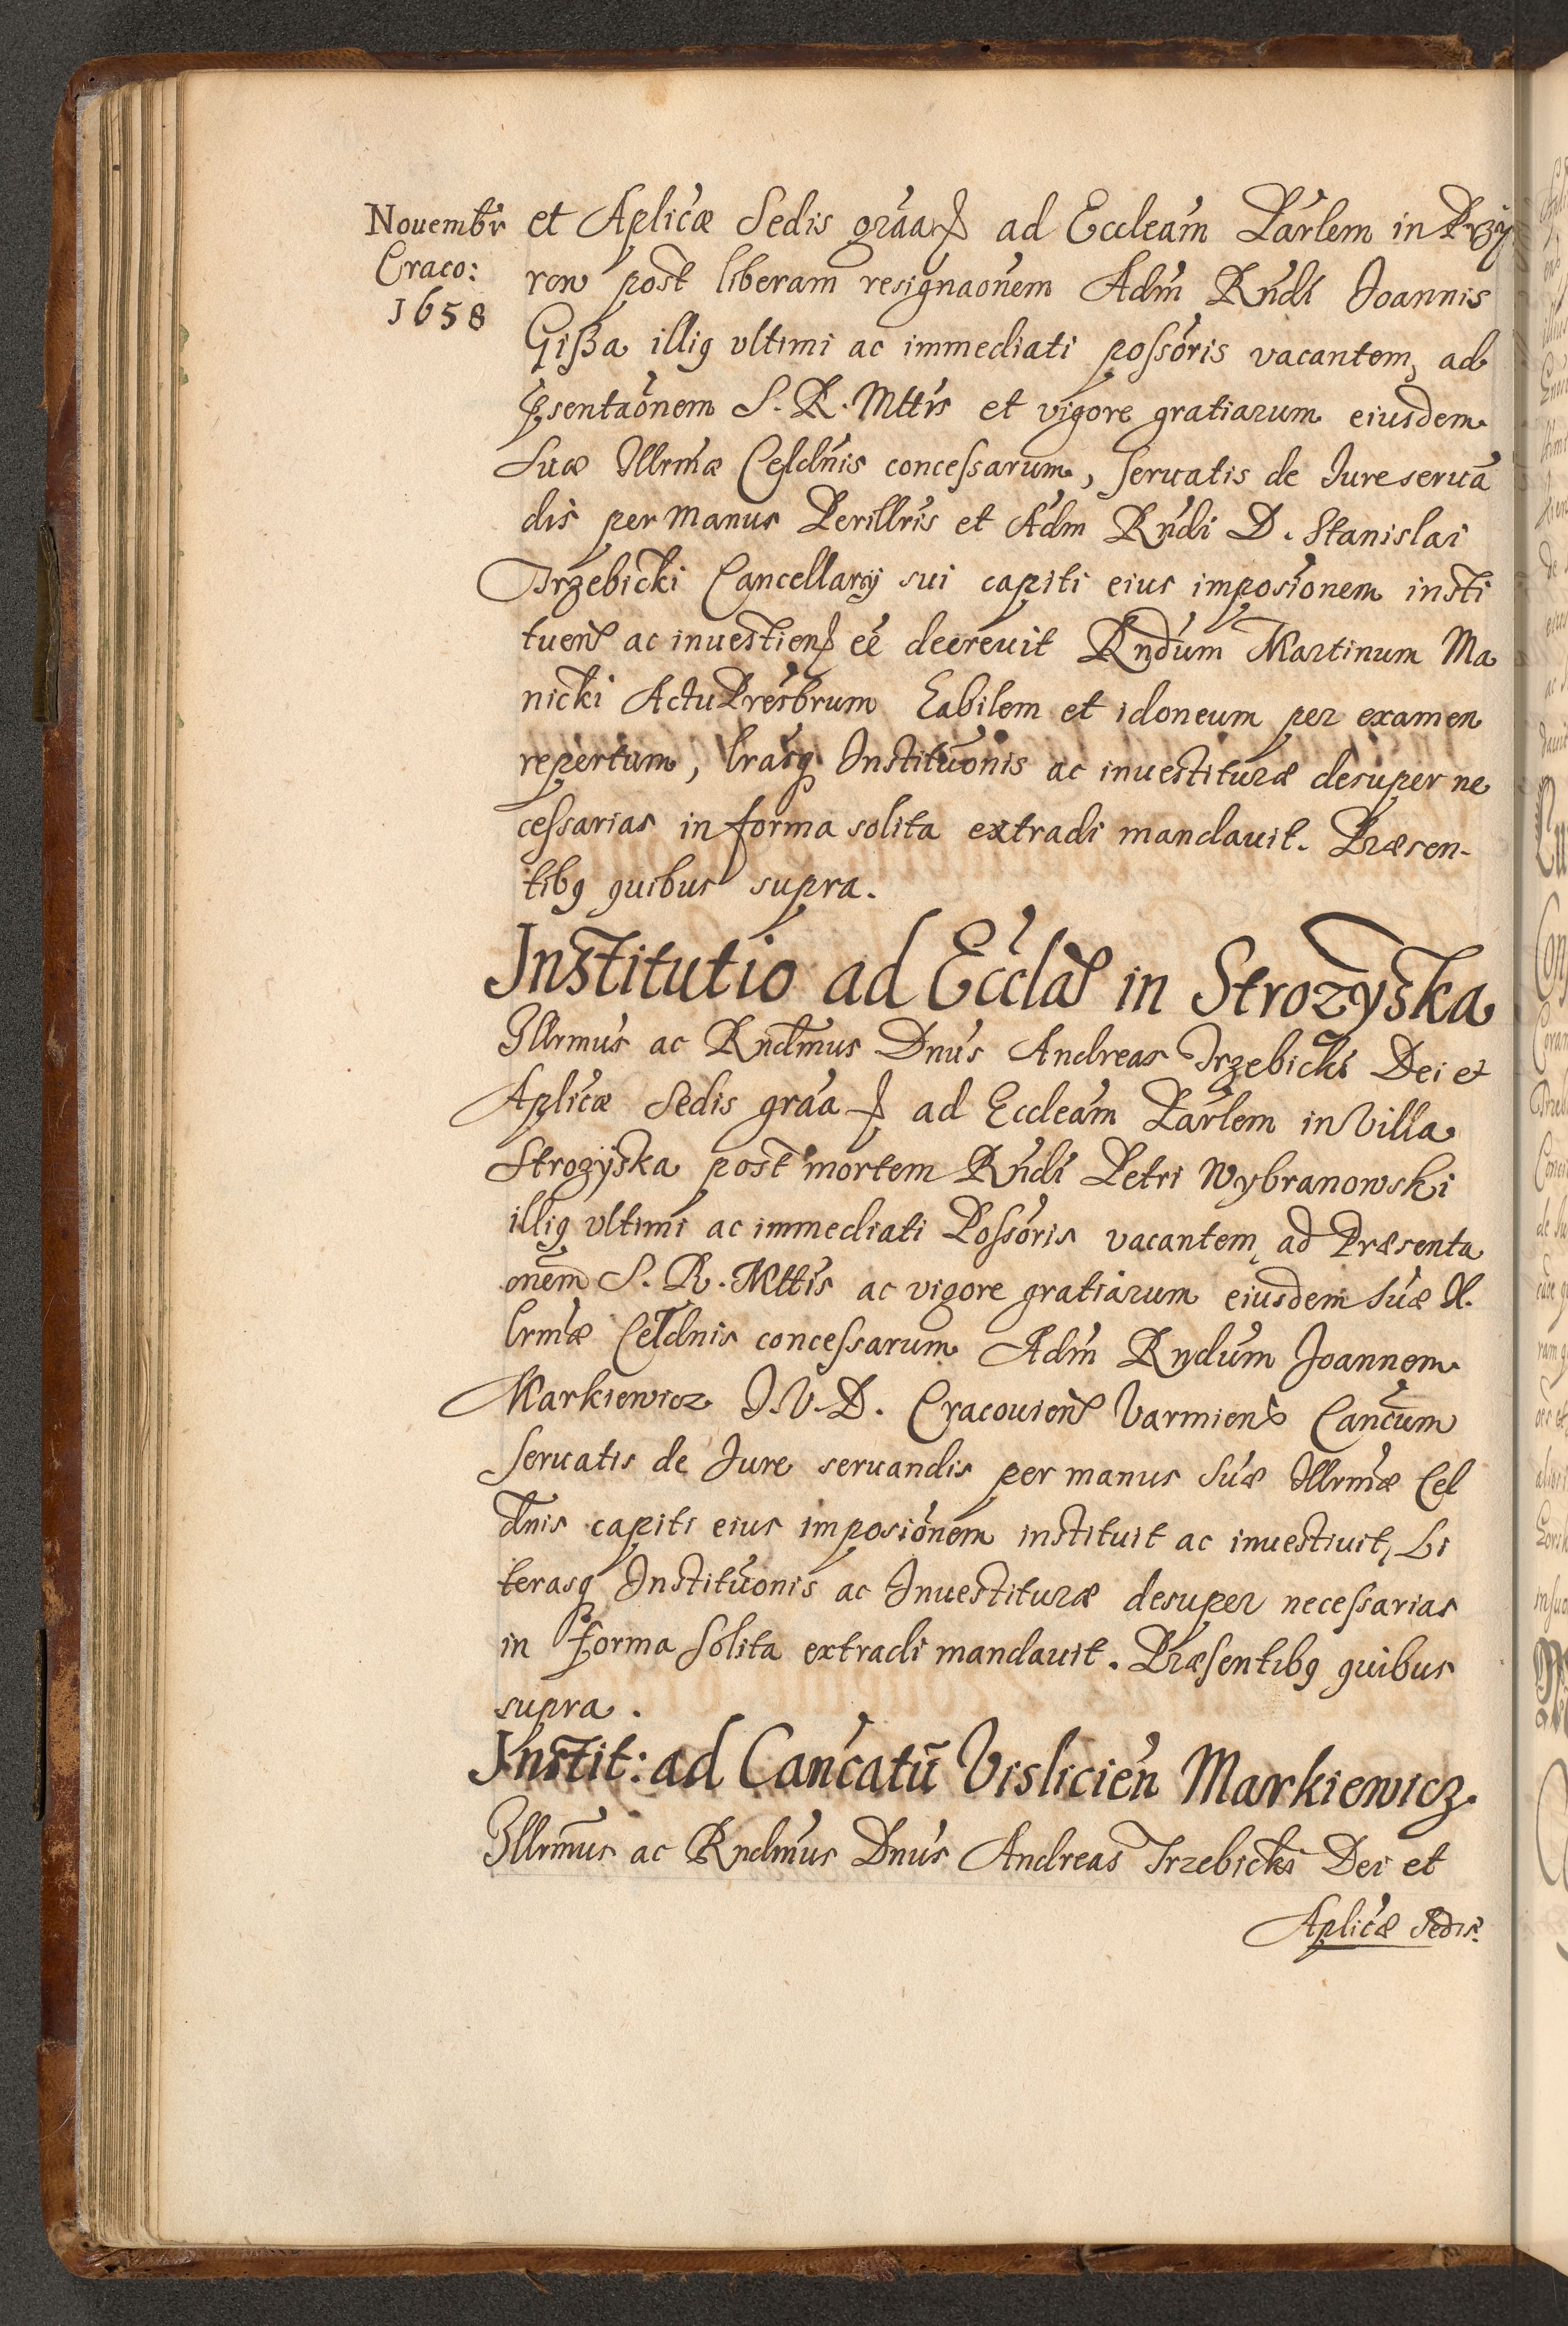 Nouembr
Craco:
1658
et Aplicæ Sedis graa ad Eccleam Parlem in Przy
ron post liberam resignaonem Adm Rndi Joannis
Gißa illiq ultimi ac immediati possoris vacantem, ad
psentaonem S. R. Mttis et vigore gratiarum eiusdem
Suæ Illrmæ Celdnis concessarum, servatis de Jure serua
dis per manus Perillris et Adm Rndi D. Stanislai
Trzebicki Cancellarij sui capiti eius imposionem insti
tuen ac inuestien ee decreuit Rndum Martinum Ma
nicki Actu Presbrum habilem et idoneum per examen
repertum, lrasq Instituonis ac inuestituræ desuper ne
cessarias in forma solita extradi mandauit. Præsen-
tibq quibus supra.
Institutio ad Eccla in Strozyska
Illrmus ac Rndmus Dnus Andreas Trzebicki Dei et
Aplicæ Sedis graa ad Eccleam Parlem in Villa
Strozyska post mortem Rndi Petri Wybranowski
illiq ultimi ac immediati Possoris vacantem, ad Præsenta
onem S. R. Mttis ac vigore gratiarum eiusdem Suæ Il.
lrmæ Celdnis concessarum Adm Rndum Joannem
Markiewicz J.V.D. Cracouien Varmiens Cancum
Seruatis de Jure seruandis per manus Suæ Illrmæ Cel
dnis capiti eius imposionem instituit ac inuestiuit, Li
terasq Instituonis ac Inuestituræ desuper necessarias
in forma solita extradi mandauit. Præsentibq quibus
supra.
Instit: ad Cancatu Vislicien Markiewicz.
Illrmus ac Rndmus Dnus Andreas Trzebicki Dei et
Aplicæ Sedis